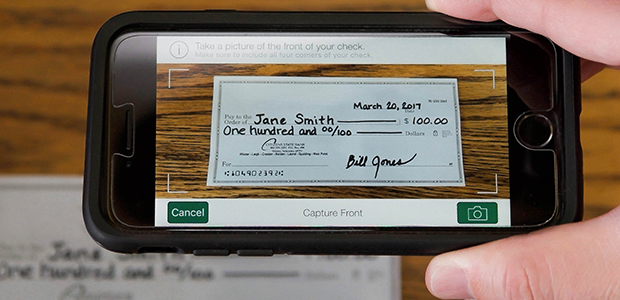 Take a picture of the front of your check.
Make sure to include all four corners of your check.
March 20, 2017
Pay to the
Order of Jane Smith $ 100.00
One hundred and 00/100 Dollars
CITIZENS STATE BANK
For Bill Jones
Cancel
Capture Front
Jane
One hundred and